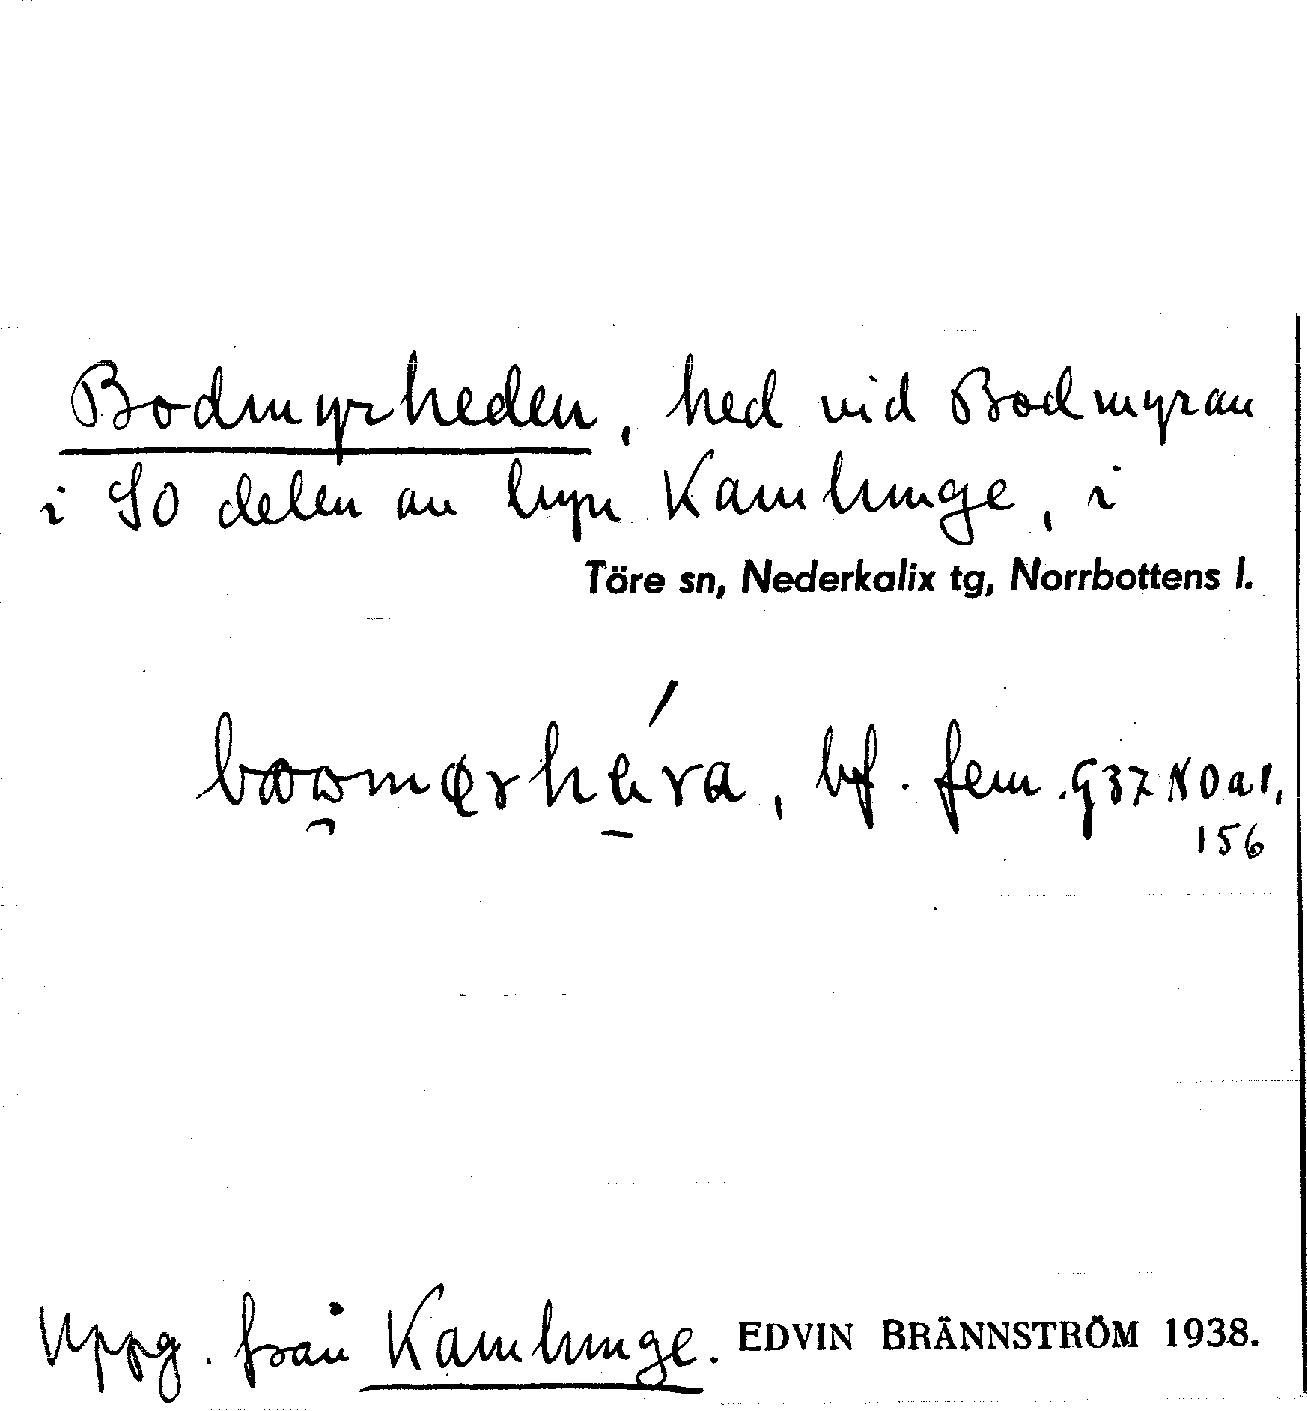 Bodmyrheden, hed vid Bodmyran
i SO delen av byn Kamlunge, i
Töre sn, Nederkalix tg, Norrbottens l.
bf. fem. G37 NO a1,
156
Uppg. från Kamlunge. EDVIN BRÄNNSTRÖM 1938.